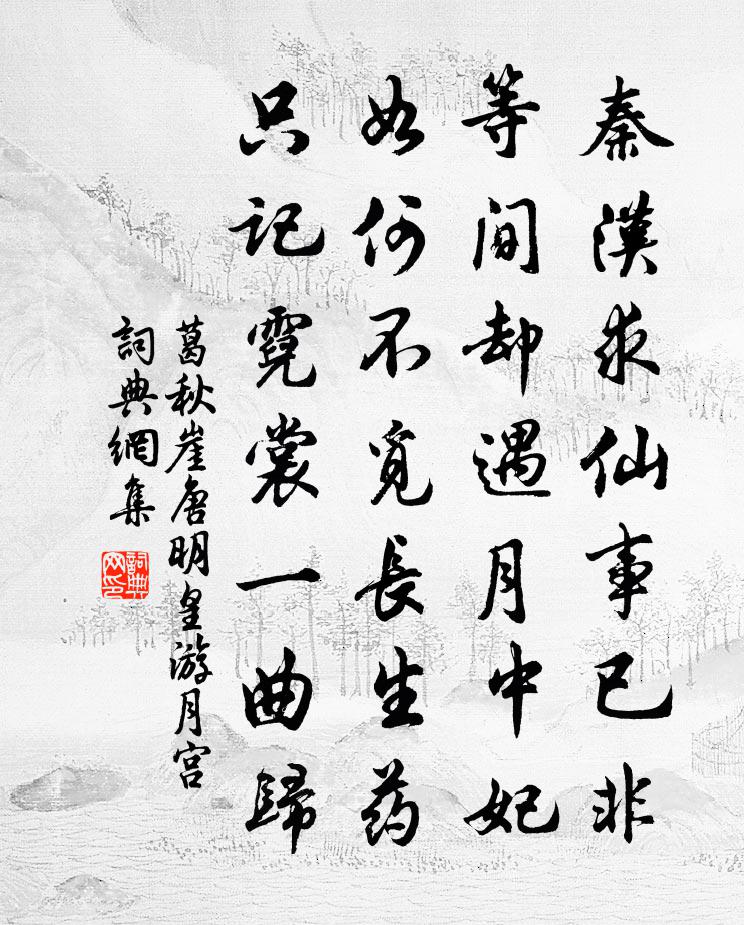 秦漢求仙事已非
等閒却遇月中妃
如何不覓長生药
只記霓裳一曲歸
葛秋崖唐明皇游月宫
詞典網集
詞典网印